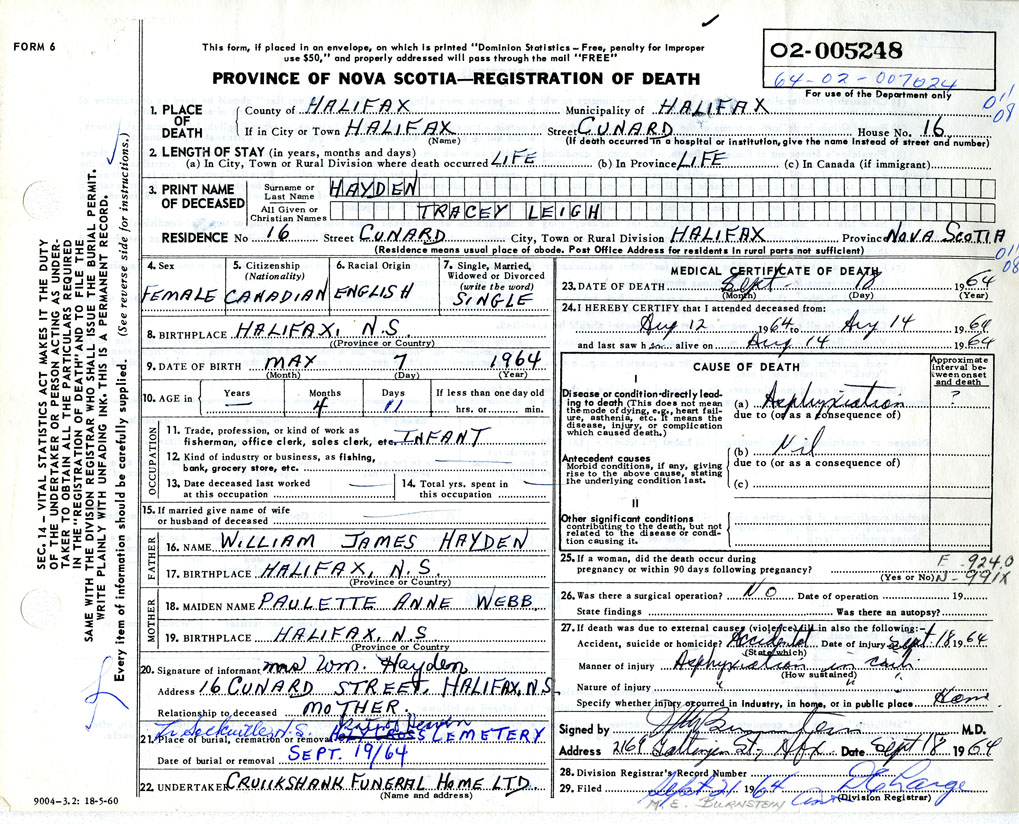 FORM 6
This form, if placed in an envelope, on which is printed "Dominion Statistics – Free, penalty for improper
use $50," and properly addressed will pass through the mail "FREE"
PROVINCE OF NOVA SCOTIA—REGISTRATION OF DEATH
02-005248
64-02-007024
For use of the Department only
011
08
1. PLACE OF DEATH
County of HALIFAX Municipality of HALIFAX
If in City or Town HALIFAX Street CUNARD House No. 16
(Name) (If death occurred in a hospital or institution, give the name instead of street and number)
2. LENGTH OF STAY (in years, months and days)
(a) In City, Town or Rural Division where death occurred LIFE (b) In Province LIFE (c) In Canada (if immigrant)
3. PRINT NAME OF DECEASED
Surname or Last Name HAYDEN
All Given or Christian Names TRACEY LEIGH
RESIDENCE No 16 Street CUNARD City, Town or Rural Division HALIFAX Province NOVA SCOTIA
(Residence means usual place of abode. Post Office Address for residents in rural parts not sufficient)
011
08
4. Sex FEMALE
5. Citizenship (Nationality) CANADIAN
6. Racial Origin ENGLISH
7. Single, Married, Widowed or Divorced (write the word) SINGLE
8. BIRTHPLACE HALIFAX, N.S.
(Province or Country)
9. DATE OF BIRTH MAY 7 1964
(Month) (Day) (Year)
10. AGE in Years — Months 4 Days 11 If less than one day old
hrs. or min.
OCCUPATION
11. Trade, profession, or kind of work as
fisherman, office clerk, sales clerk, etc. INFANT
12. Kind of industry or business, as fishing,
bank, grocery store, etc.
13. Date deceased last worked
at this occupation
14. Total yrs. spent in
this occupation
15. If married give name of wife
or husband of deceased
FATHER
16. NAME WILLIAM JAMES HAYDEN
17. BIRTHPLACE HALIFAX, N.S.
(Province or Country)
MOTHER
18. MAIDEN NAME PAULETTE ANNE WEBB
19. BIRTHPLACE HALIFAX, N.S
(Province or Country)
20. Signature of informant Mrs Wm. Hayden
Address 16 CUNARD STREET, HALIFAX, N.S.
Relationship to deceased MOTHER.
Lr. Sackville, N.S.
21. Place of burial, cremation or removal CEMETERY
Date of burial or removal SEPT. 19/64
22. UNDERTAKER CRUIKSHANK FUNERAL HOME LTD.
(Name and address)
9004-3.2: 18-5-60
MEDICAL CERTIFICATE OF DEATH
23. DATE OF DEATH Sept. 18 1964
(Month) (Day) (Year)
24. I HEREBY CERTIFY that I attended deceased from:
Aug 12 1964 Aug 14 1964
and last saw h alive on Aug 14 1964
CAUSE OF DEATH
Approximate interval between onset and death
I
Disease or condition directly leading to death (This does not mean the mode of dying, e.g., heart failure, asthenia, etc. It means the disease, injury, or complication which caused death.)
(a) Asphyxiation ?
due to (or as a consequence of)
Antecedent causes
Morbid conditions, if any, giving rise to the above cause, stating the underlying condition last.
(b) Nil
due to (or as a consequence of)
(c)
II
Other significant conditions
contributing to the death, but not related to the disease or condition causing it.
25. If a woman, did the death occur during
pregnancy or within 90 days following pregnancy?
(Yes or No)
E-924.0
N-991X
26. Was there a surgical operation? No Date of operation 19
State findings Was there an autopsy?
27. If death was due to external causes (violence) fill in also the following:
Accident, suicide or homicide? Accidental Date of injury Sept 18 1964
(State which)
Manner of injury Asphyxiation in
(How sustained)
Nature of injury " " "
Specify whether injury occurred in Industry, in home, or in public place Home
Signed by M.D.
Address 2169 Gottingen St, Hfx Date Sept 18 1964
28. Division Registrar's Record Number
29. Filed Sept 21 1964
(Division Registrar)
M.E. BURNSTEIN
SEC. 14 – VITAL STATISTICS ACT MAKES IT THE DUTY
OF THE UNDERTAKER OR PERSON ACTING AS UNDER-
TAKER TO OBTAIN ALL THE PARTICULARS REQUIRED
IN THE "REGISTRATION OF DEATH" AND TO FILE THE
SAME WITH THE DIVISION REGISTRAR WHO SHALL ISSUE THE BURIAL PERMIT.
WRITE PLAINLY WITH UNFADING INK. THIS IS A PERMANENT RECORD.
Every item of information should be carefully supplied. (See reverse side for instructions.)